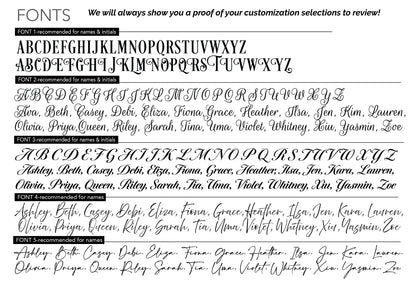 FONTS
We will always show you a proof of your customization selections to review!
FONT 1-recommended for names & initials
ABCDEFGHIJKLMNOPQRSTUVWXYZ
ABCDEFGHIJKLMNOPQRSTUVWXYZ
FONT 2-recommended for names & initials
ABCDEFGHIJKLMNOPQRSTUVWXYZ
Ava, Beth, Casey, Debi, Eliza, Fiona, Grace, Heather, Ilsa, Jen, Kim, Lauren,
Olivia, Priya, Queen, Riley, Sarah, Tina, Uma, Violet, Whitney, Xiu, Yasmin, Zoe
FONT 3-recommended for names & initials
ABCDEFGHIJKLMNOPQRSTUVWXYZ
Ashley, Beth, Casey, Debi, Eliza, Fiona, Grace, Heather, Ilsa, Jen, Kara, Lauren,
Olivia, Priya, Queen, Riley, Sarah, Tina, Uma, Violet, Whitney, Xiu, Yasmin, Zoe
FONT 4-recommended for names
Ashley, Beth, Casey, Debi, Eliza, Fiona, Grace, Heather, Ilsa, Jen, Kara, Lauren,
Olivia, Priya, Queen, Riley, Sarah, Tia, Uma, Violet, Whitney, Xiu, Yasmin, Zoe
FONT 5-recommended for names
Ashley, Beth, Casey, Debi, Eliza, Fiona, Grace, Heather, Ilsa, Jen, Kara, Lauren,
Olivia, Priya, Queen, Riley, Sarah, Tia, Uma, Violet, Whitney, Xiu, Yasmin, Zoe